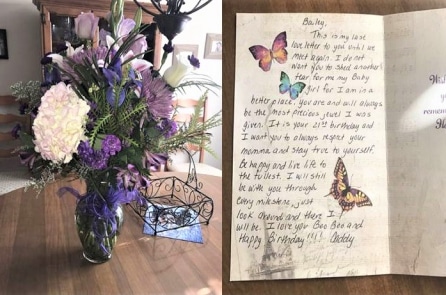 Bailey,
This is my last
love letter to you until we
meet again. I do not
want you to shed another
tear for me my Baby
girl for I am in a
better place. You are and will always
be the most precious jewel I was
given. It is your 21st birthday and
I want you to always respect your
momma and stay true to yourself.
Be happy and live life to
the fullest. I will still
be with you through
every milestone, just
look around and there I
will be. I love you Boo Boo and
Happy Birthday!!!! Daddy